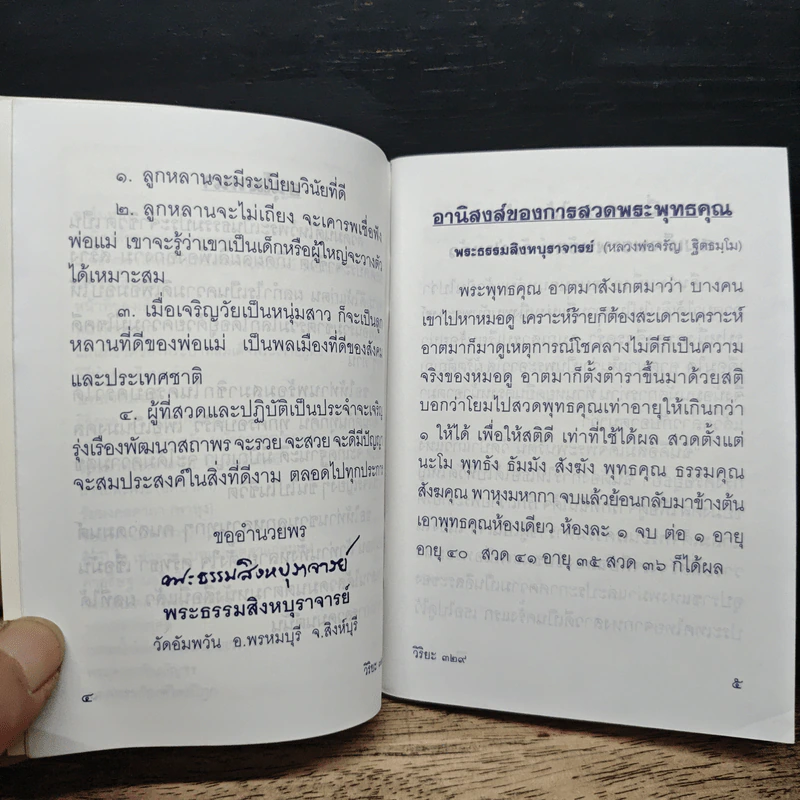 ๑. ลูกหลานจะมีระเบียบวินัยที่ดี
๒. ลูกหลานจะไม่เถียง จะเคารพเชื่อฟัง
พ่อแม่ เขาจะรู้ว่าเขาเป็นเด็กหรือผู้ใหญ่จะวางตัว
ได้เหมาะสม
๓. เมื่อเจริญวัยเป็นหนุ่มสาว ก็จะเป็นลูก
หลานที่ดีของพ่อแม่ เป็นพลเมืองที่ดีของสังคม
และประเทศชาติ
๔. ผู้ที่สวดและปฏิบัติเป็นประจำจะเจริญ
รุ่งเรืองพัฒนาสถาพร จะรวย จะสวย จะดีมีปัญญา
จะสมประสงค์ในสิ่งที่ดีงาม ตลอดไปทุกประการ
ขออำนวยพร
พระธรรมสิงหบุราจารย์
พระธรรมสิงหบุราจารย์
วัดอัมพวัน อ.พรหมบุรี จ.สิงห์บุรี
วิริยะ
๔
อานิสงส์ของการสวดพระพุทธคุณ
พระธรรมสิงหบุราจารย์ (หลวงพ่อจรัญ ฐิตธมฺโม)
พระพุทธคุณ อาตมาสังเกตมาว่า บางคน
เขาไปหาหมอดู เคราะห์ร้ายก็ต้องสะเดาะเคราะห์
อาตมาก็มาดูเหตุการณ์โชคลางไม่ดีก็เป็นความ
จริงของหมอดู อาตมาก็ตั้งตำราขึ้นมาด้วยสติ
บอกว่าโยมไปสวดพุทธคุณเท่าอายุให้เกินกว่า
๑ ให้ได้ เพื่อให้สติดี เท่าที่ใช้ได้ผล สวดตั้งแต่
นะโม พุทธัง ธัมมัง สังฆัง พุทธคุณ ธรรมคุณ
สังฆคุณ พาหุงมหากา จบแล้วย้อนกลับมาข้างต้น
เอาพุทธคุณห้องเดียว ห้องละ ๑ จบ ต่อ ๑ อายุ
อายุ ๔๐ สวด ๔๑ อายุ ๓๕ สวด ๓๖ ก็ได้ผล
วิริยะ ๓๒๙
๕